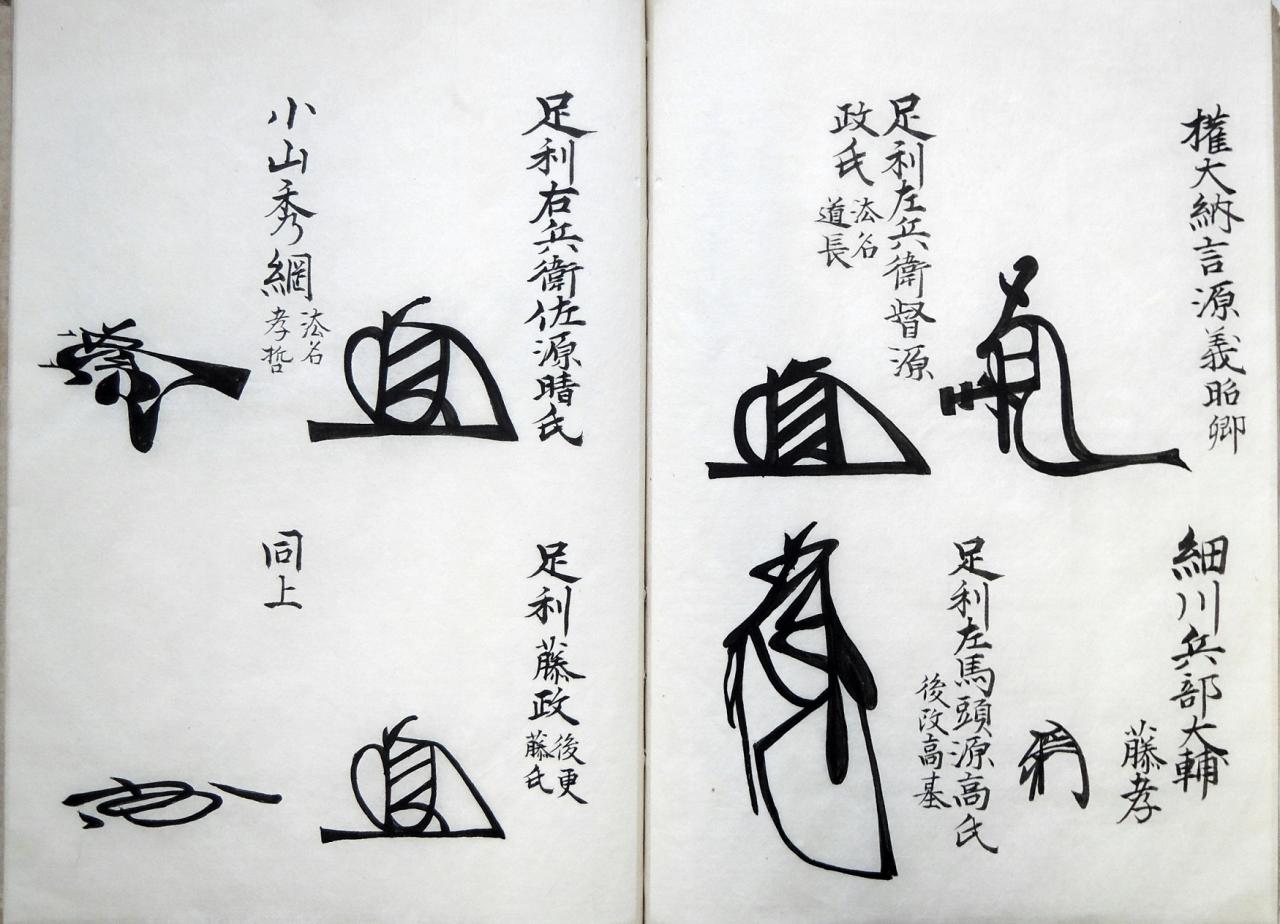 權大納言源義昭卿
細川兵部大輔
藤孝
足利左兵衛督源
政氏
法名
道長
足利左馬頭源高氏
後改高基
足利右兵衛佐源晴氏
足利藤政
後更
藤氏
小山秀綱
法名
孝哲
同上